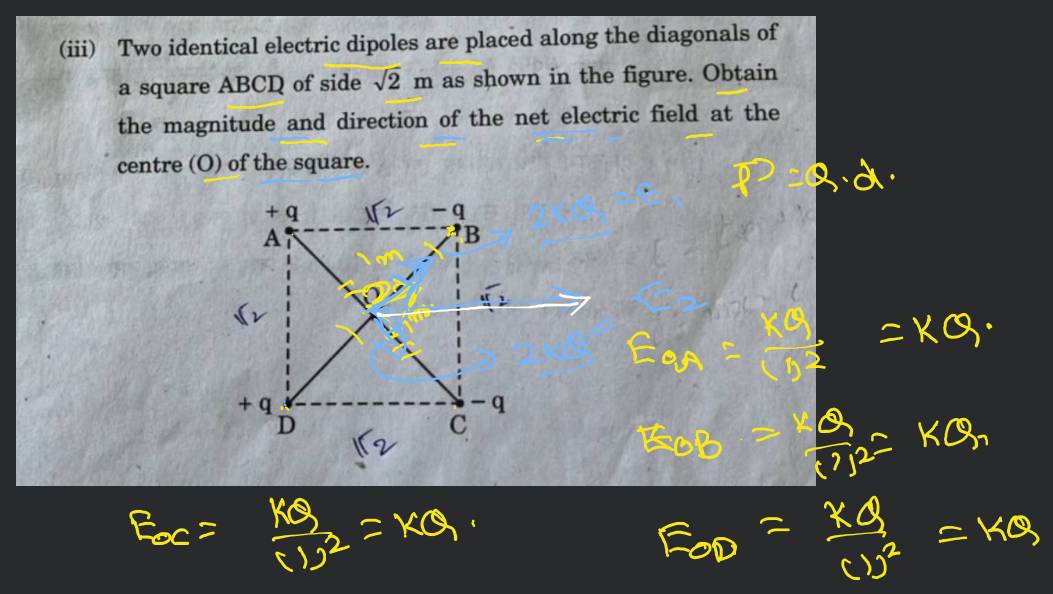 (iii) Two identical electric dipoles are placed along the diagonals of
a square ABCD of side √2 m as shown in the figure. Obtain
the magnitude and direction of the net electric field at the
centre (O) of the square.
P = Q.d.
+ q √2 − q
A B
2KQ = E1
1m
√2
√2
2KQ
E2
EOA = KQ/(1)² = KQ.
+ q − q
D C
√2
EOB = KQ/(1)² = KQ,
EOC = KQ/(1)² = KQ.
EOD = KQ/(1)² = KQ